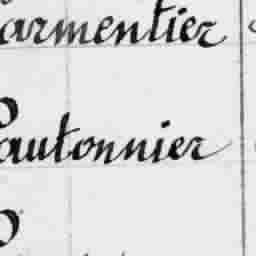 armentier
autonnier